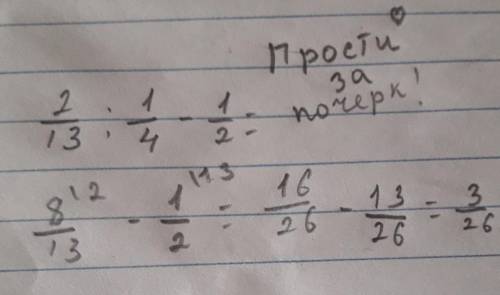 Прости
за
почерк!
2/13 : 1/4 - 1/2 =
8/13 \2 - 1/2 \13 = 16/26 - 13/26 = 3/26